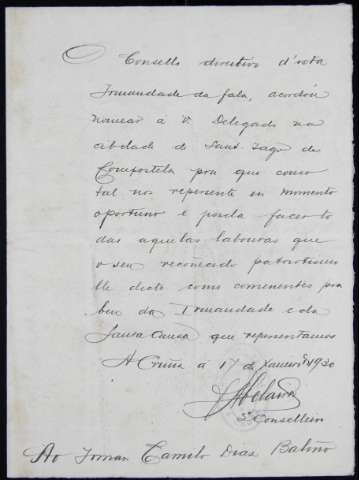 O Consello directivo d'ista
Irmandade da fala, acordóu
nomear á V. Delegado na
cibdade de Sant-Iago de
Compostela pra que como
tal nos represente en momento
oportuno e poida facer to
das aquelas labouras que
o seu reconecido patriotismo
lle dicte como comenentes pra
ben da Irmandade e da
Santa Causa que representamos
A Cruña á 17 de Xaneiro 1930
Conselleiro
Ao Irman Camilo Dias Baliño